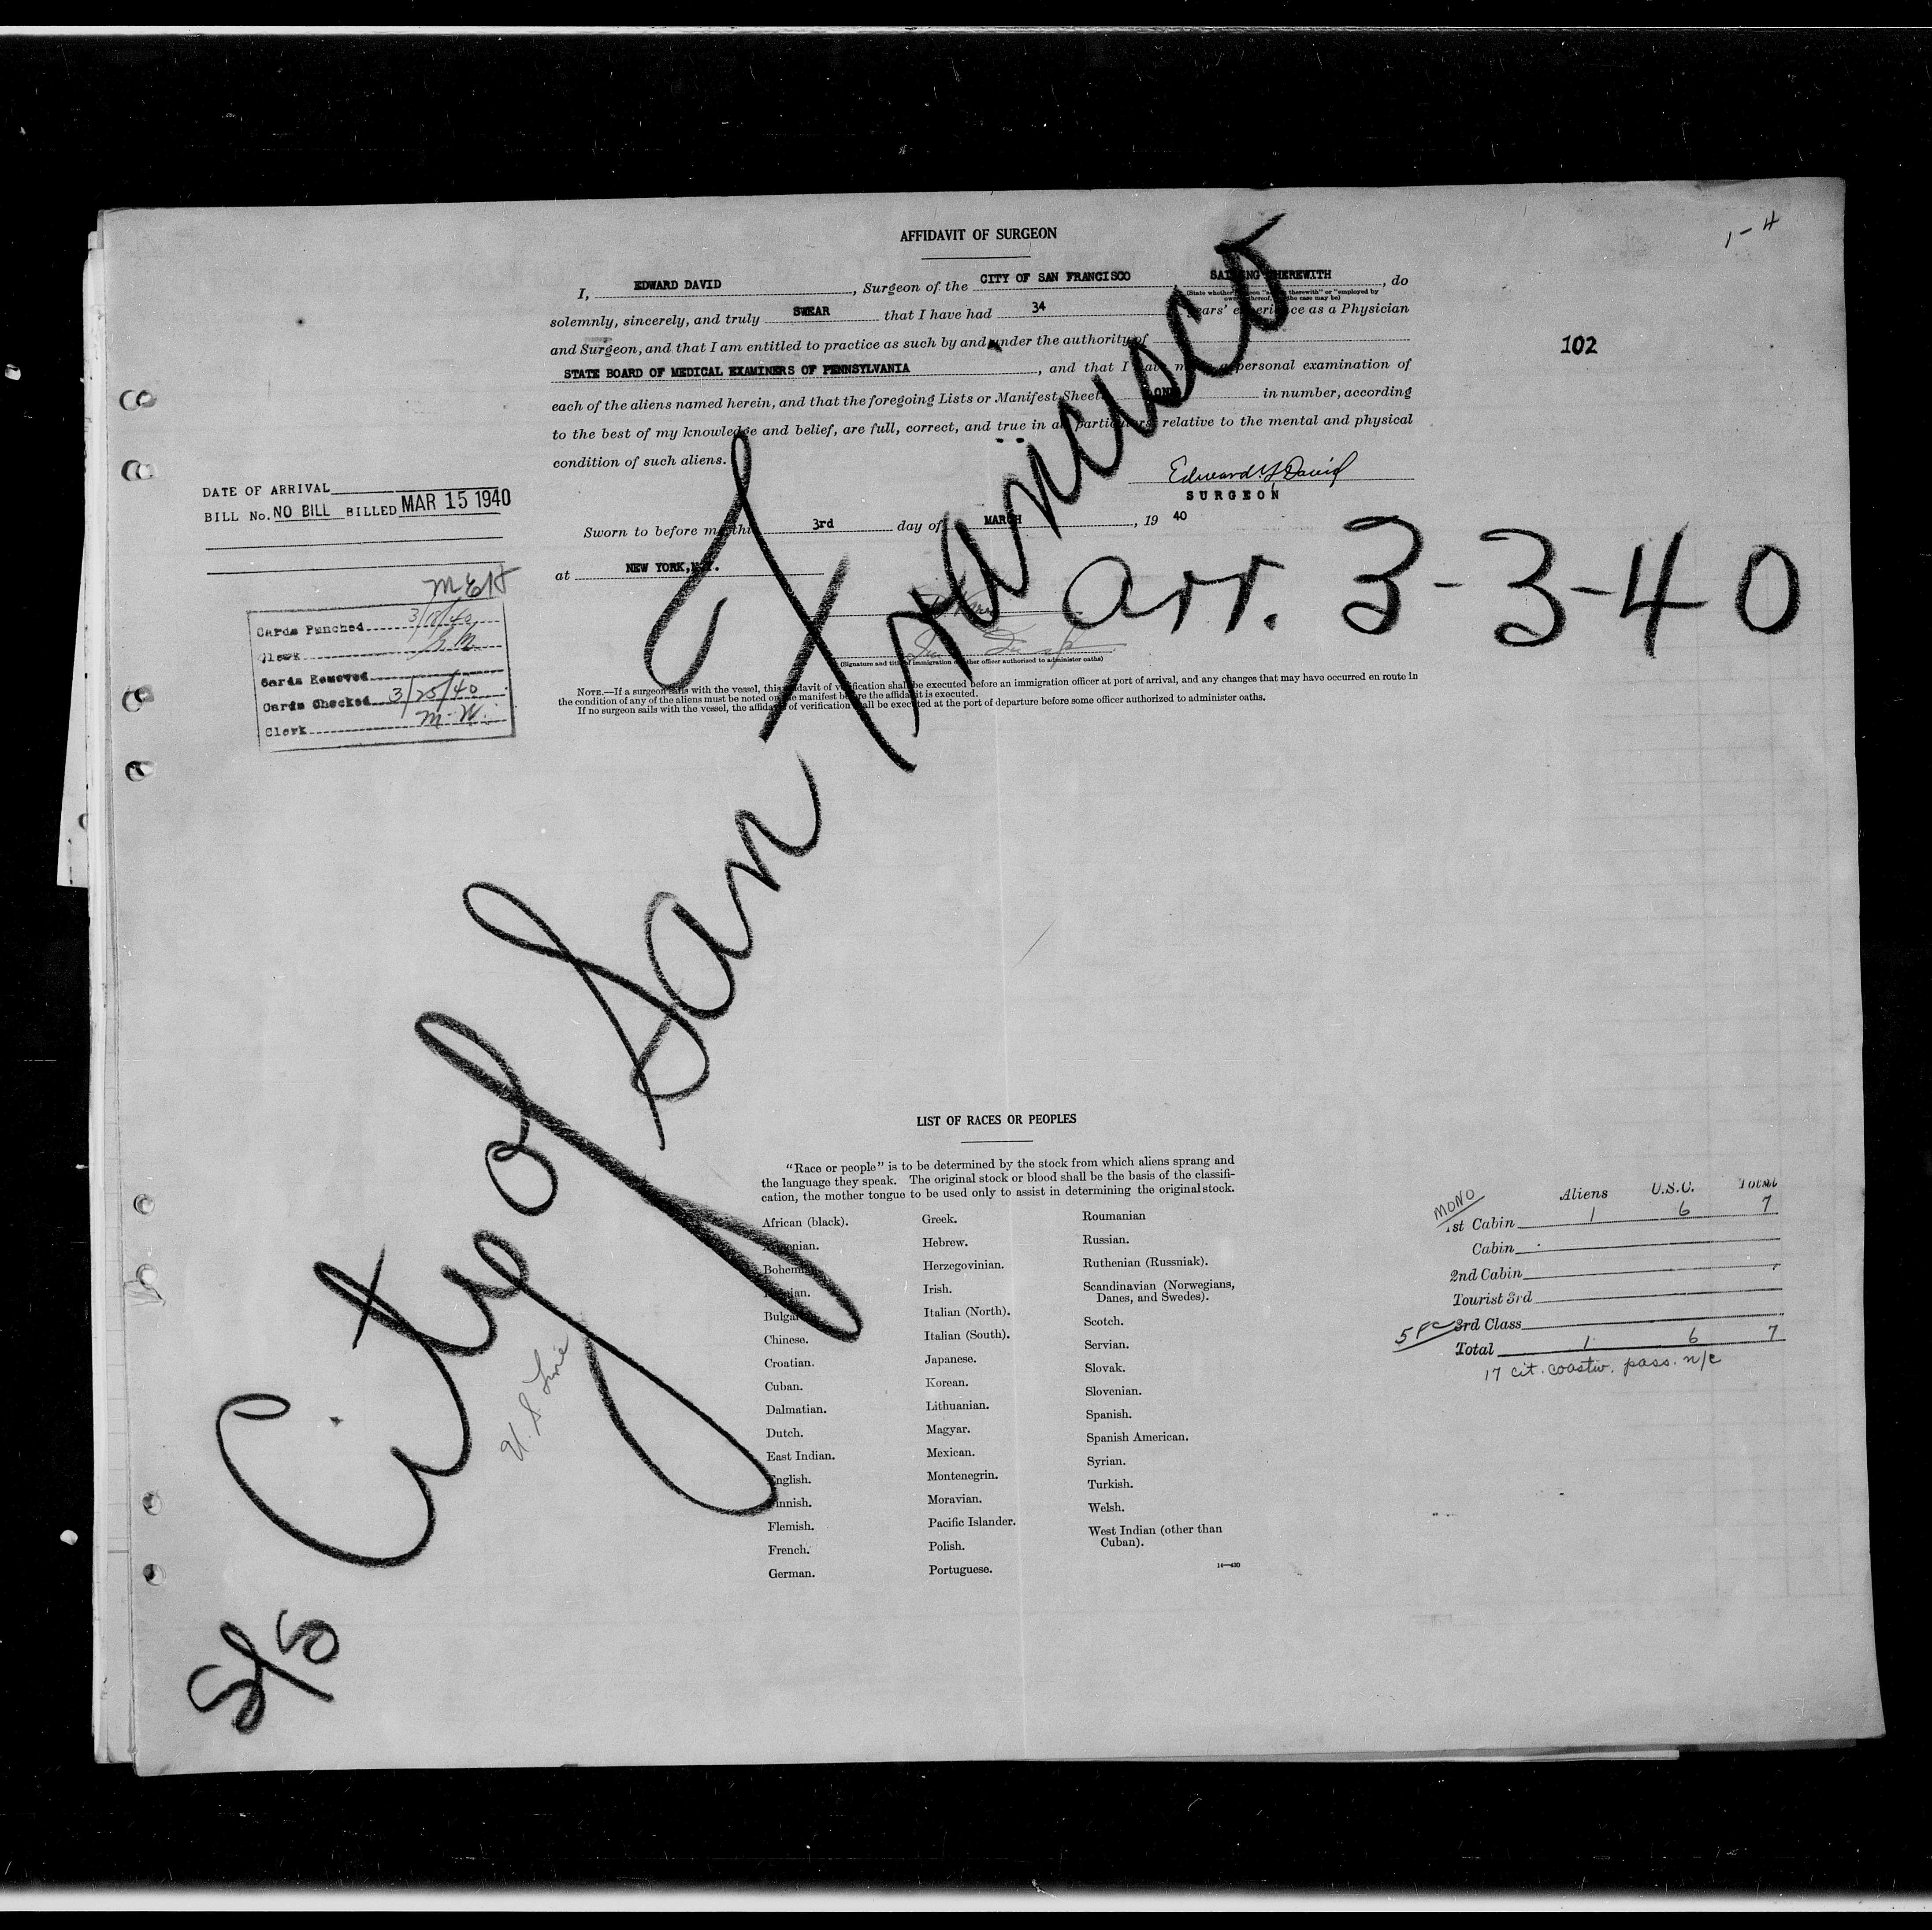 1-4
AFFIDAVIT OF SURGEON
I, EDWARD DAVID, Surgeon of the CITY OF SAN FRANCISCO, SAILING THEREWITH, do
(State whether surgeon "sailing therewith" or "employed by owners thereof," as the case may be)
solemnly, sincerely, and truly SWEAR that I have had 34 years' experience as a Physician
and Surgeon, and that I am entitled to practice as such by and under the authority of
STATE BOARD OF MEDICAL EXAMINERS OF PENNSYLVANIA, and that I have made a personal examination of
each of the aliens named herein, and that the foregoing Lists or Manifest Sheets, ONE in number, according
to the best of my knowledge and belief, are full, correct, and true in all particulars relative to the mental and physical
condition of such aliens.
102
Edward L David
SURGEON
Sworn to before me this 3rd day of MARCH, 19 40
at NEW YORK, N.Y.
(Signature and title of immigration or other officer authorized to administer oaths)
NOTE.—If a surgeon sails with the vessel, this affidavit of verification shall be executed before an immigration officer at port of arrival, and any changes that may have occurred en route in
the condition of any of the aliens must be noted on the manifest before the affidavit is executed.
If no surgeon sails with the vessel, the affidavit of verification shall be executed at the port of departure before some officer authorized to administer oaths.
DATE OF ARRIVAL
BILL No. NO BILL BILLED MAR 15 1940
Cards Punched 3/18/40
Clerk
Cards Removed
Cards Checked 3/25/40
Clerk M. W.
S/S City of San Francisco
arr. 3-3-40
U. S. Line
LIST OF RACES OR PEOPLES
"Race or people" is to be determined by the stock from which aliens sprang and
the language they speak. The original stock or blood shall be the basis of the classifi-
cation, the mother tongue to be used only to assist in determining the original stock.
African (black).
Armenian.
Bohemian.
Bosnian.
Bulgarian.
Chinese.
Croatian.
Cuban.
Dalmatian.
Dutch.
East Indian.
English.
Finnish.
Flemish.
French.
German.
Greek.
Hebrew.
Herzegovinian.
Irish.
Italian (North).
Italian (South).
Japanese.
Korean.
Lithuanian.
Magyar.
Mexican.
Montenegrin.
Moravian.
Pacific Islander.
Polish.
Portuguese.
Roumanian
Russian.
Ruthenian (Russniak).
Scandinavian (Norwegians,
Danes, and Swedes).
Scotch.
Servian.
Slovak.
Slovenian.
Spanish.
Spanish American.
Syrian.
Turkish.
Welsh.
West Indian (other than
Cuban).
14—430
MONO
Aliens U.S.C. Total
1st Cabin 1 6 7
Cabin
2nd Cabin
Tourist 3rd
3rd Class
Total 1 6 7
17 cit. coastw. pass. n/c